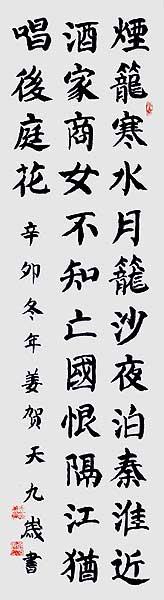 煙籠寒水月籠沙夜泊秦淮近
酒家商女不知亡國恨隔江猶
唱後庭花 辛卯冬年姜贺天九歲書